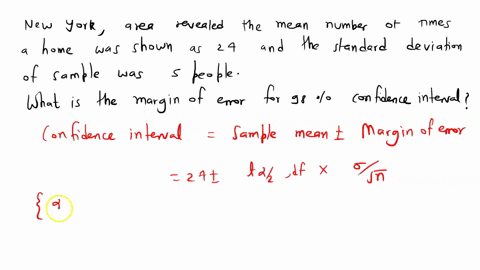 New York, area revealed the mean number of times
a home was shown as 24 and the standard deviation
of sample was 5 people.
What is the margin of error for 98% confidence interval?
Confidence interval = Sample mean ± Margin of error
= 24 ± t α/2, df × σ/√n
{ α